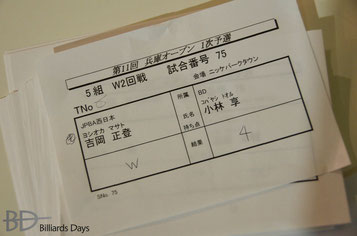 第11回 兵庫オープン 1次予選
5組 W2回戦 試合番号 75
TNo
会場 ニッケパークタウン
JPBA西日本
ヨシオカ マサト
吉岡 正登
所属
氏名
持ち点
結果
BD
コバヤシ トオル
小林 享
W
4
SNo. 75
BD
Billiards Days